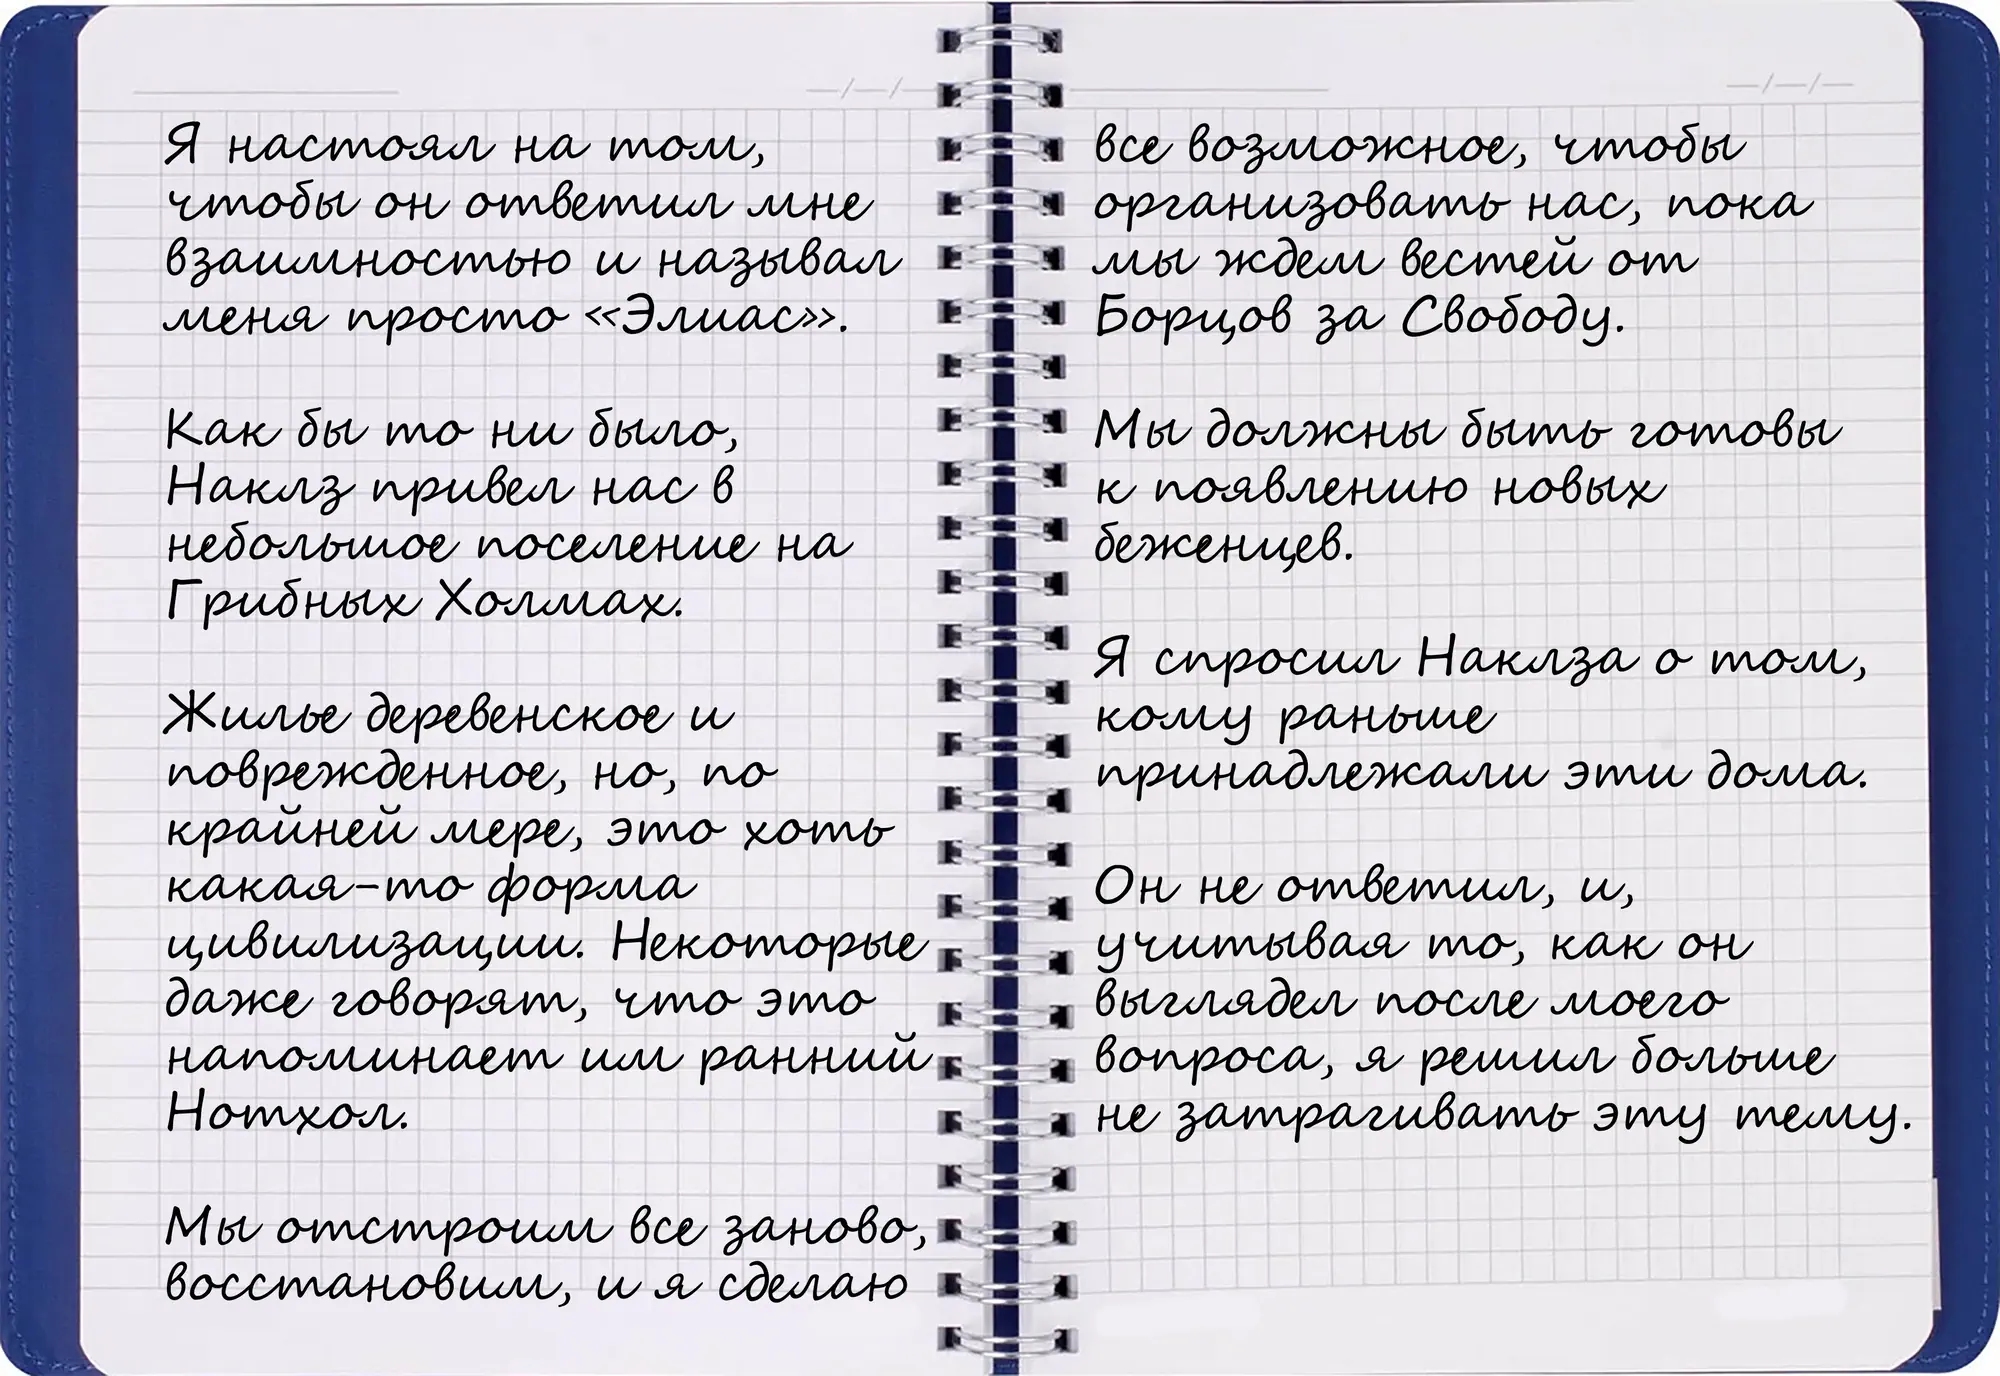 Я настоял на том,
чтобы он ответил мне
взаимностью и называл
меня просто «Элиас».
Как бы то ни было,
Наклз привел нас в
небольшое поселение на
Грибных Холмах.
Жилье деревенское и
поврежденное, но, по
крайней мере, это хоть
какая-то форма
цивилизации. Некоторые
даже говорят, что это
напоминает им ранний
Нотхол.
Мы отстроим все заново,
восстановим, и я сделаю
все возможное, чтобы
организовать нас, пока
мы ждем вестей от
Борцов за Свободу.
Мы должны быть готовы
к появлению новых
беженцев.
Я спросил Наклза о том,
кому раньше
принадлежали эти дома.
Он не ответил, и,
учитывая то, как он
выглядел после моего
вопроса, я решил больше
не затрагивать эту тему.